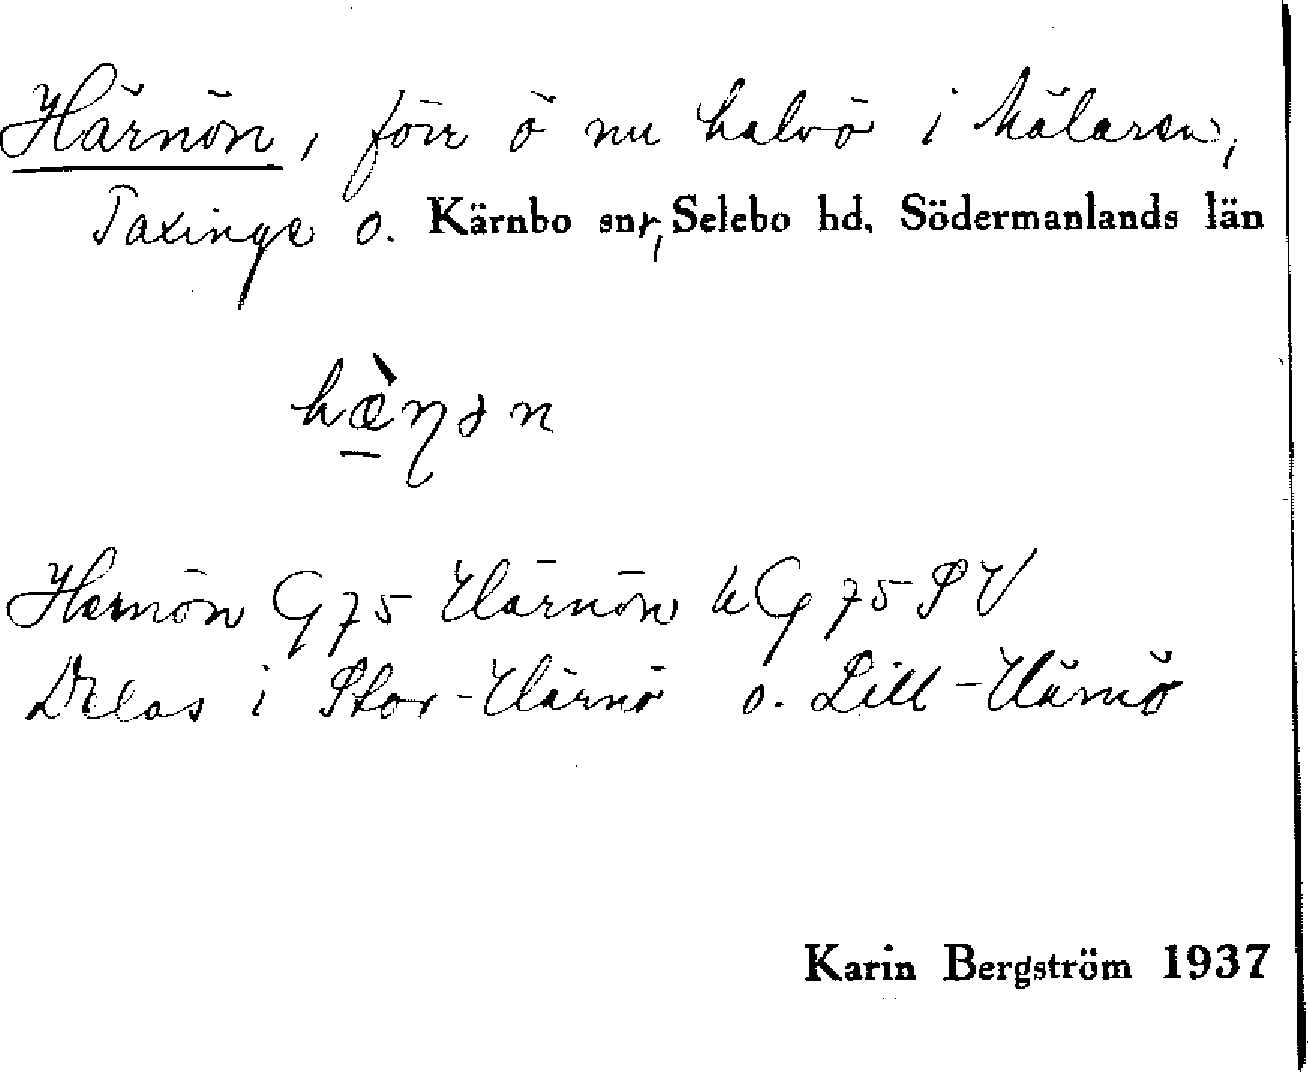 Härnön, förr ö nu halvö i Mälaren,
Taxinge o. Kärnbo snr, Selebo hd, Södermanlands län
hæ̀ŋən
Hernön G 75 Härnön kG 75 SV
Delas i Stor-Härnö o. Lill-Härnö
Karin Bergström 1937